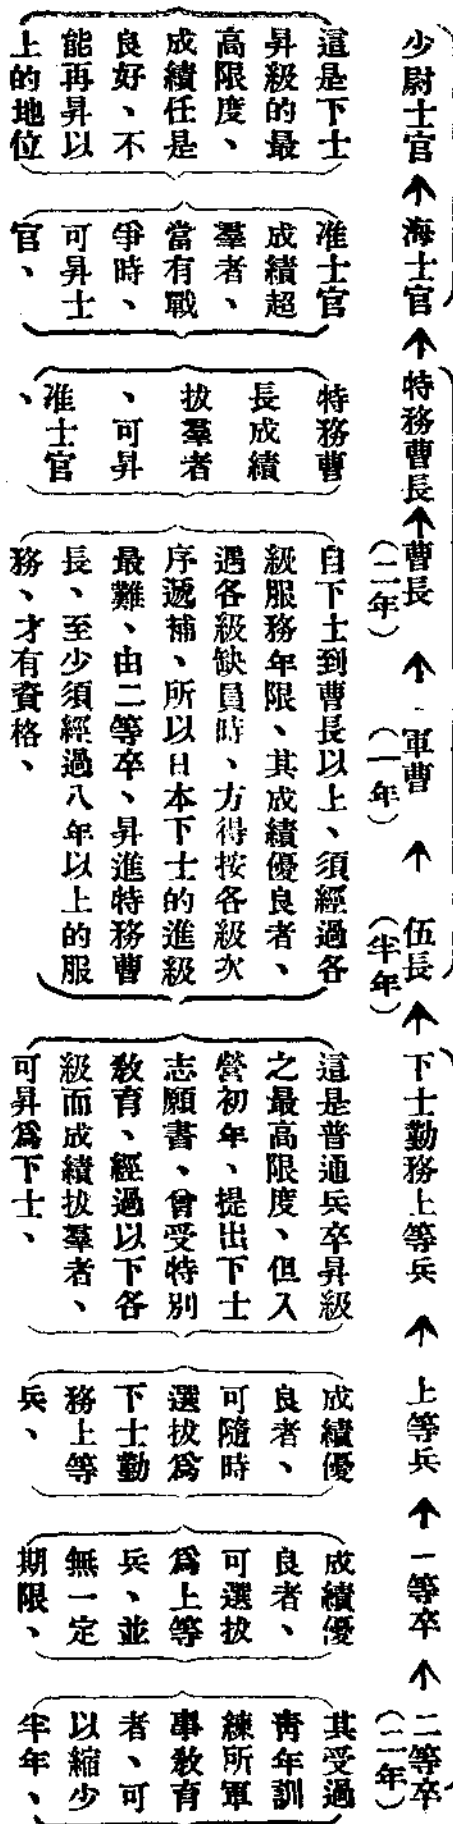 少尉士官↑海士官↑特務曹長↑曹長(二年)↑軍曹(一年)↑伍長(半年)↑下士勤務上等兵↑上等兵↑一等卒↑二等卒(二年)
這是下士
昇級的最
高限度、
成績任是
良好、不
能再昇以
上的地位
准士官
成績超
羣者、
當有戰
爭時、
可昇士
官、
特務曹
長成績
拔羣者
、可昇
准士官
、
自下士到曹長以上、須經過各
級服務年限、其成績優良者、
遇各級缺員時、方得按各級次
序遞補、所以日本下士的進級
最難、由二等卒、昇進特務曹
長、至少須經過八年以上的服
務、才有資格、
這是普通兵卒昇級
之最高限度、但入
營初年、提出下士
志願書、曾受特別
敎育、經過以下各
級而成績拔羣者、
可昇爲下士、
成績優
良者、
可隨時
選拔爲
下士勤
務上等
兵、
成績優
良者、
可選拔
爲上等
兵、並
無一定
期限、
其受過
靑年訓
練所軍
事敎育
者、可
以縮少
半年、